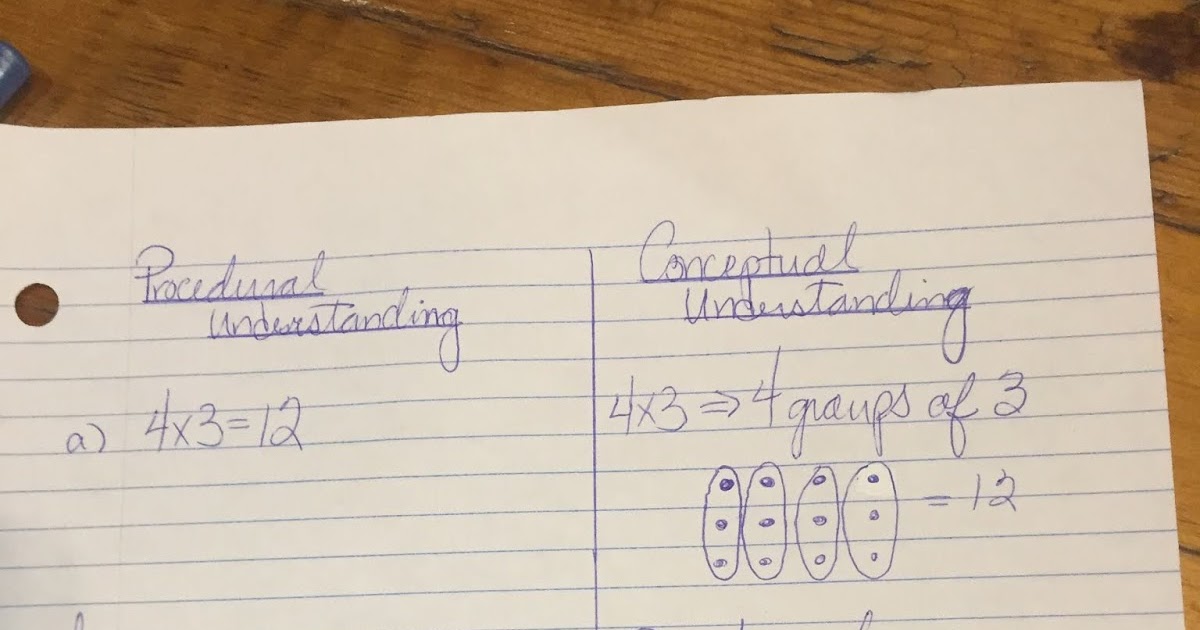 Procedural
Understanding
a) 4x3=12
Conceptual
Understanding
4x3 ⇒ 4 groups of 3
= 12